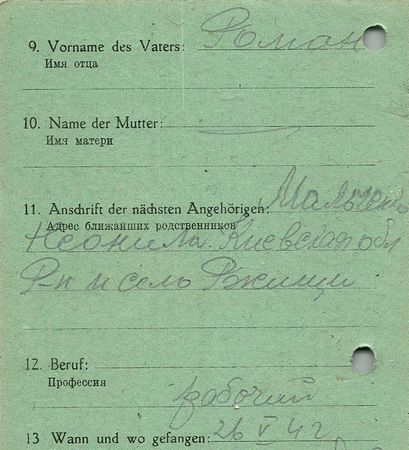 9. Vorname des Vaters: Роман
Имя отца
10. Name der Mutter:
Имя матери
11. Anschrift der nächsten Angehörigen: Мальченко
Адрес ближайших родственников
Неонила Киевская обл
Р-н и село Ржищи
12. Beruf:
Профессия
рабочий
13 Wann und wo gefangen: 26 V 42